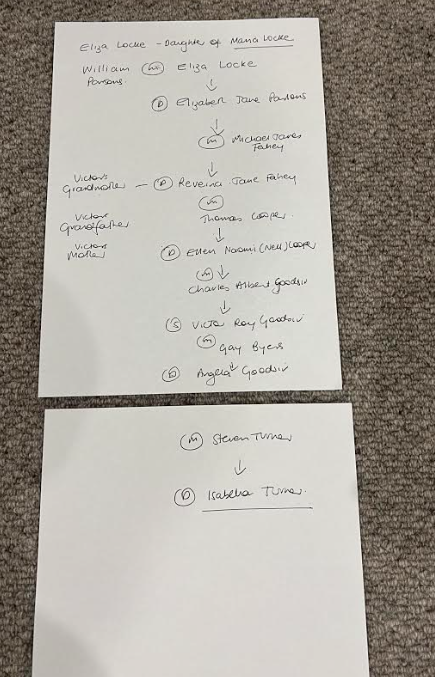 Eliza Locke - Daughter of Maria Locke
William (m) Eliza Locke
Parsons
(D) Elizabeth Jane Parsons
(m) Michael James
Fahey
Victor's
Grandmother - (D) Reverina Jane Fahey
(m)
Victor's Thomas Cooper
Grandfather
Victor's (D) Ellen Naomi (Nell) Cooper
Mother
(m)
Charles Albert Goodsir
(S) Victor Roy Goodsir
(m) Gay Byers
(D) Angela Goodsir
(m) Steven Turner
(D) Isabella Turner.